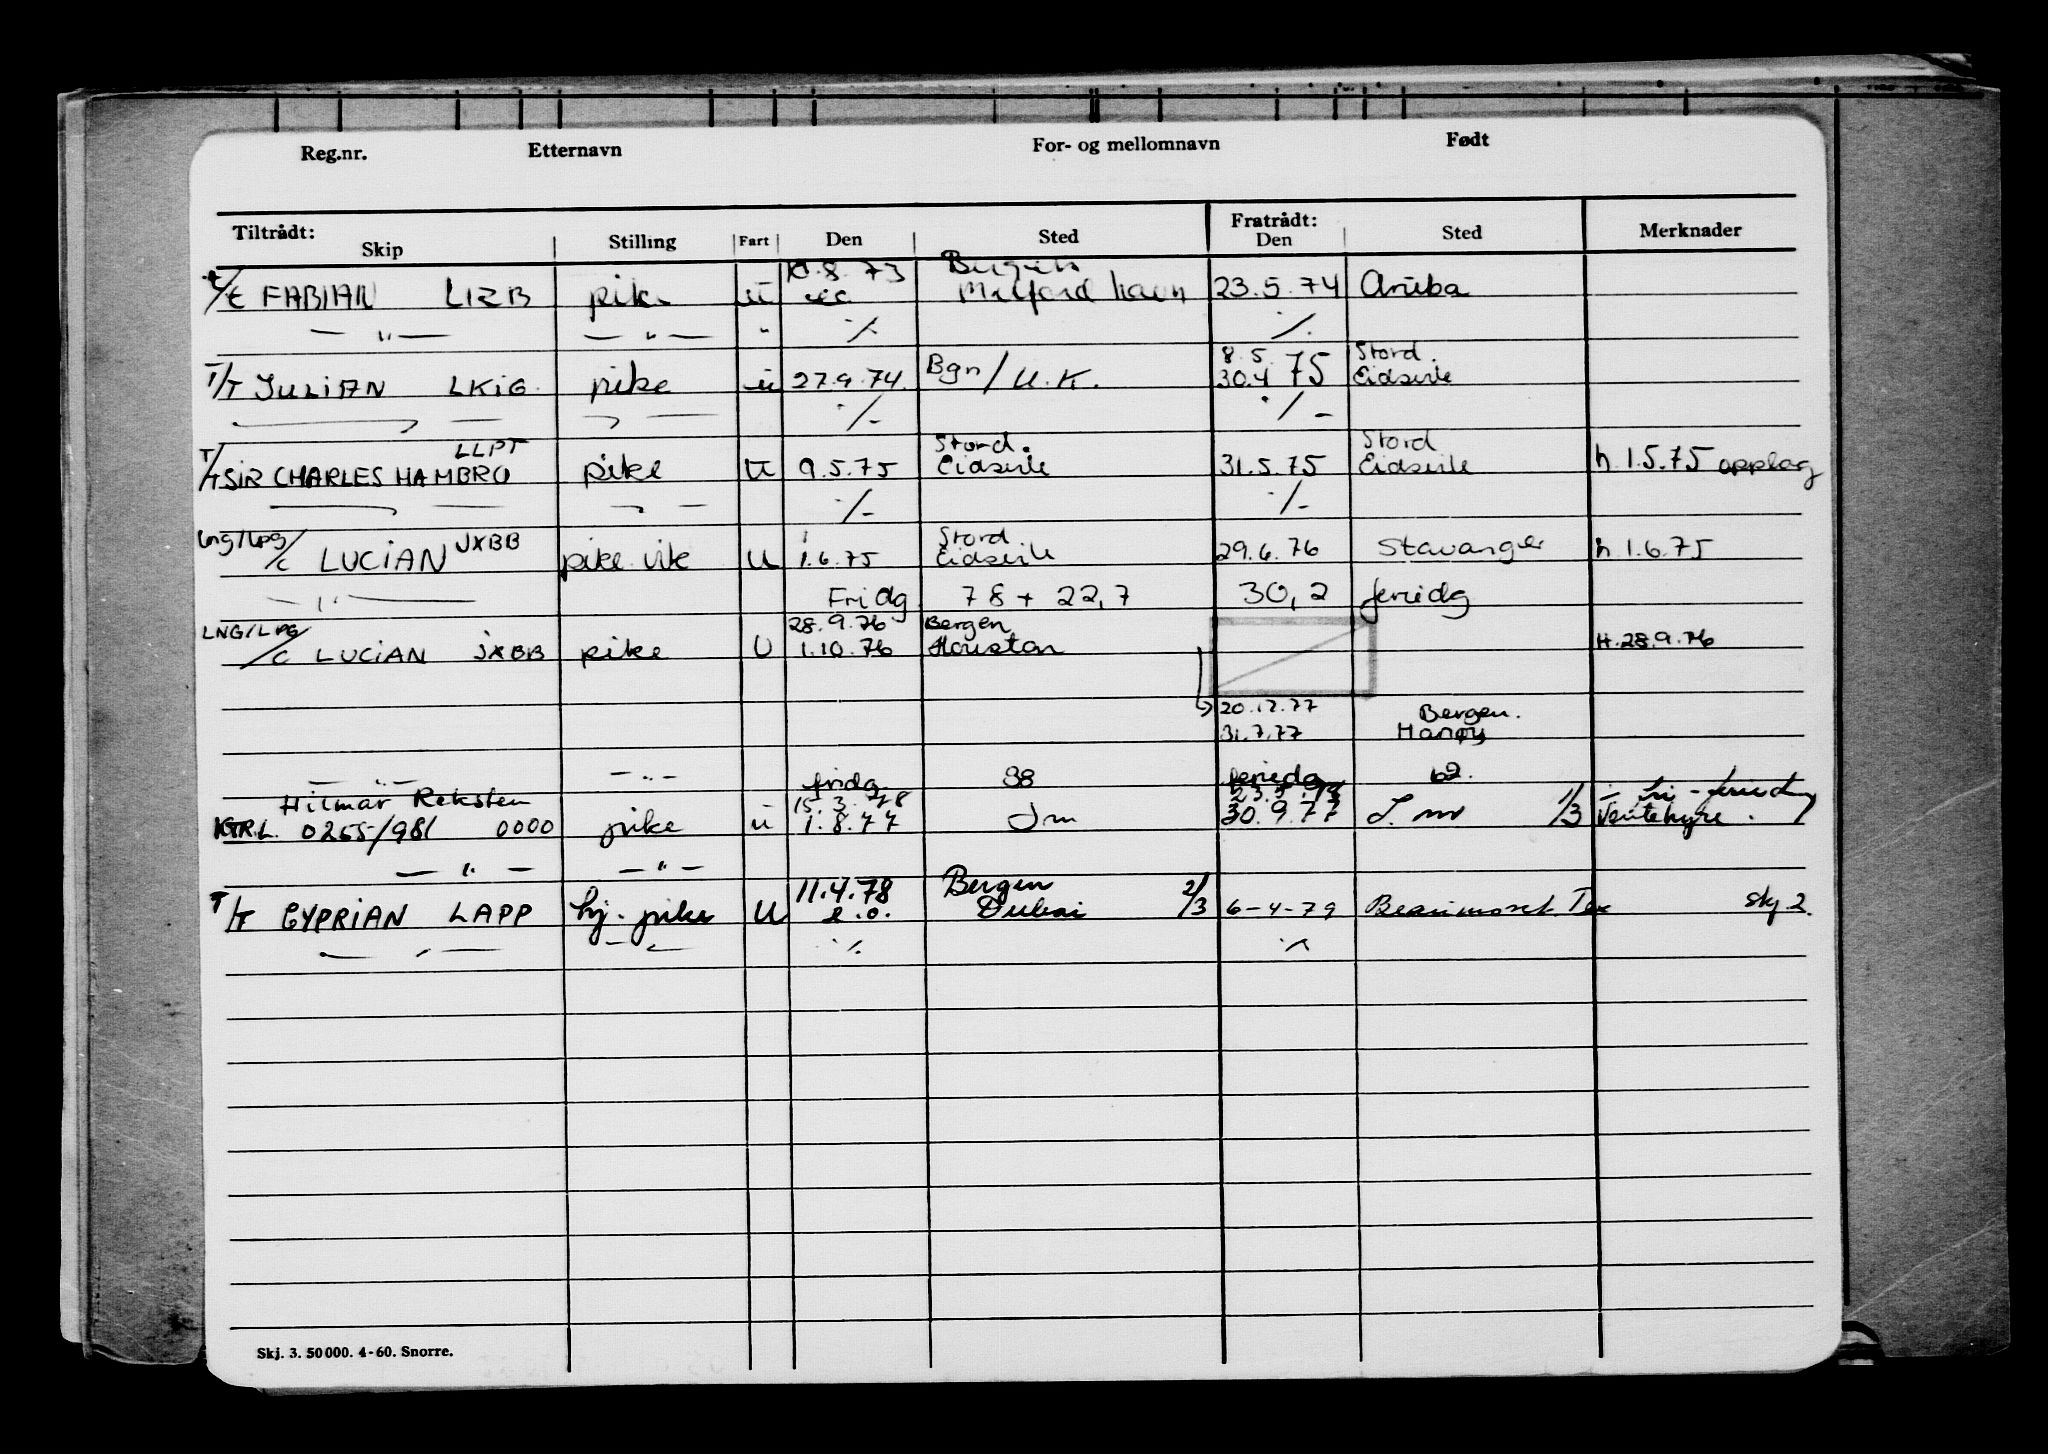 Reg.nr. Etternavn For- og mellomnavn Født
Tiltrådt: Fratrådt:
Skip Stilling Fart Den Sted Den Sted Merknader
8.73 Bergen
FABIAN LIZB pike u Milford haven 23.5.74 Aruba
— " — — " — " ./. ./.
8.5. Stord.
T/T JULIAN LKIG pike u 27.9.74. Bgn / U.K. 30.4 75 Eidsvik
./- ./-
LLPT Stord. Stord
T/T SIR CHARLES HAMBRO pike U 9.5.75 Eidsvik 31.5.75 Eidsvik h.1.5.75 opplag
./- ./-
Lng/Lpg JXBB Stord
/c LUCIAN pike vik U 1.6.75 Eidsvik 29.6.76 Stavanger h.1.6.75
— " — Fridg 78 + 22,7 30,2 feriedg
LNG/LPG 28.9.76 Bergen
/C LUCIAN JXBB pike U 1.10.76 Houston H.28.9.76
20.12.77 Bergen.
31.7.77 Hanøy
— " — — " — fridg 38 feriedg 62.
Hilmar Reksten 15.3.78
KTR.L. 0255/981 0000 pike u 1.8.77 30.9.77 1/3 Ventehyre.
— " — — " —
11.4.78 Bergen
T/T CYPRIAN LAPP hj. pike U e.o. Dubai 2/3 6-4-79 Beaumont Tex Skj 2.
./. ./.
Skj. 3. 50 000. 4-60. Snorre.